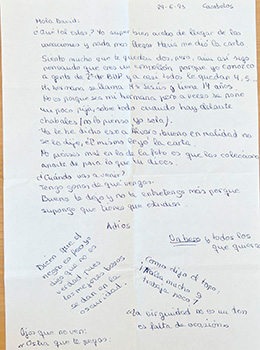 29-6-93 Cacabelos
Hola David:
¿Qué tal estás? Yo super bien acabo de llegar de las
vacaciones y nada mas llegar Mari me dio la carta.
Siento mucho que te queden dos, pero, aun así sigo
pensando que eres un empollón porque yo conozco
a gente de 2º de BUP y a casi todos le quedan 4, 5...
Mi hermana se llama Mª Jesús y tiene 14 años
No es porque sea mi hermana pero a veces se pone
un poco pija, sobre todo cuando hay delante
chabales (no lo pienso yo sola).
Ya le he dicho eso a Álvaro, bueno en realidad no
se lo dije, él mismo leyó la carta.
No pienses mal en lo de la foto es que las colecciono
aparte de para lo que tu dices.
¿Cuándo vas a venir?
Tengo ganas de que vengas.
Bueno te dejo y no te entretengo más porque
supongo que tienes que estudiar.
Adios
Un beso y todos los
que quieras
Dicen que el
negro es malo
digo que no es
verdad pues
los mejores besos
se dan en la
oscuridad.
Como dijo el Papa:
¡Habla mucho y
trabaja poco!
La virginidad no es un don
es falta de ocasión
Ojos que no ven:
Ostia que te pegas.